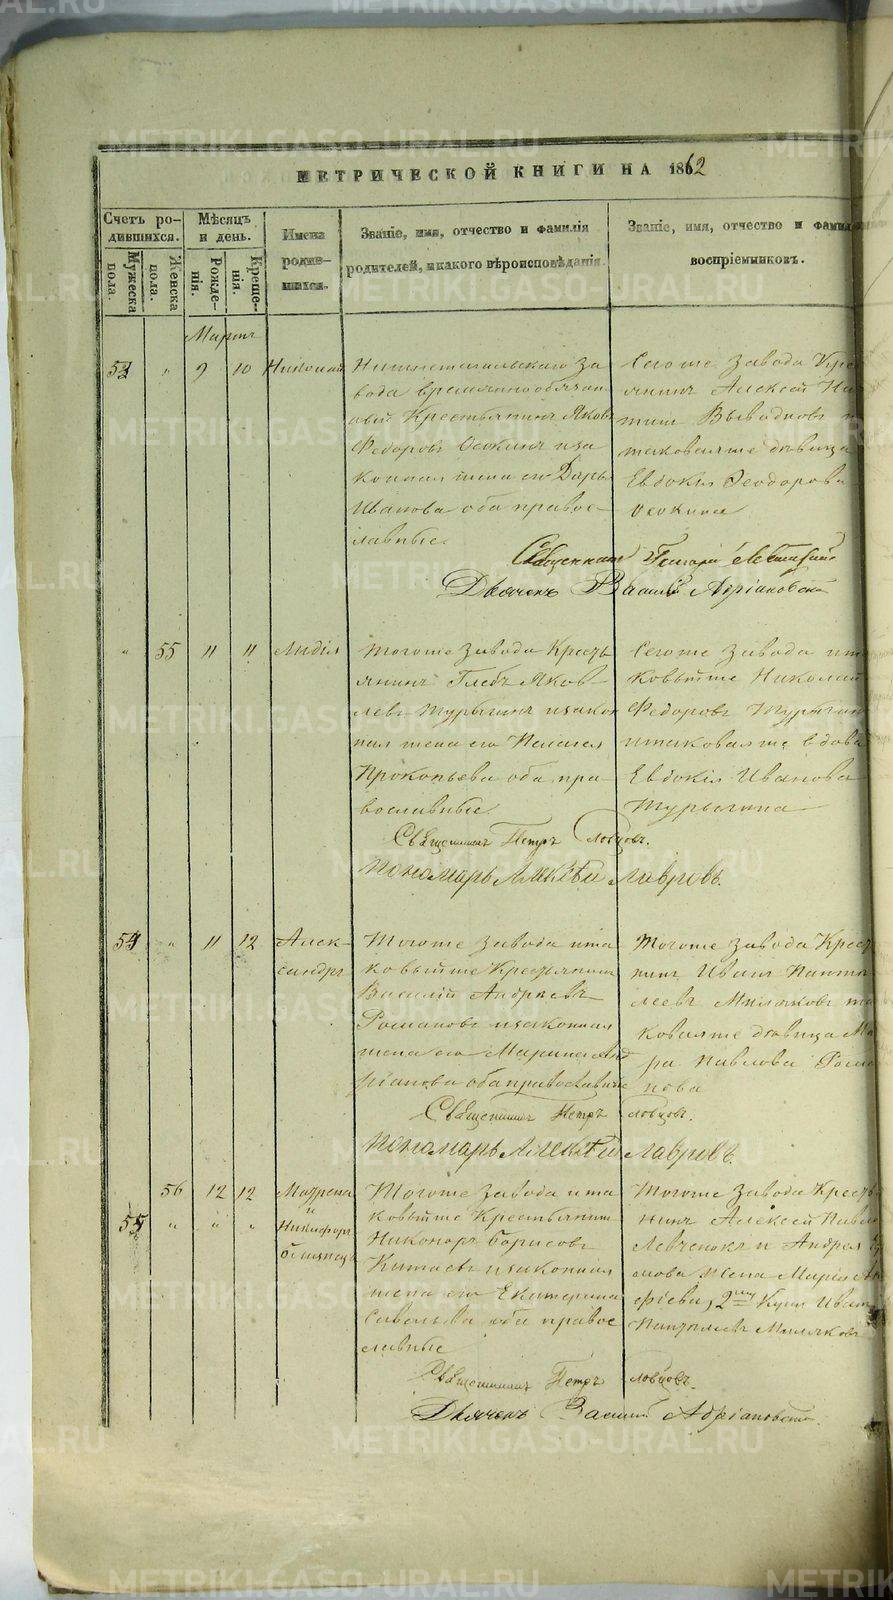 МЕТРИЧЕСКОЙ КНИГИ НА 1862
Счетъ родившихся.
Мужеска пола.
Женска пола.
Мѣсяцъ и день.
Рожденія.
Крещенія.
Имена родившихся.
Званіе, имя, отчество и фамилія
родителей, и какого вѣроисповѣданія.
Званіе, имя, отчество и фами
воспріемниковъ.
Мартъ
53 " 9 10 Николай
Нижнетагильскаго за
вода временнообязан
ный Крестьянинъ Яковъ
Федоровъ Осокинъ и за
конная жена его Дарья
Иванова оба правос
лавные.
Сегоже завода Крес
янинъ Алексей Ни
Евдокия Феодорова
Осокина
Священникъ
Дьячекъ Василій Адріановскій
" 55 11 11 Лидія
Тогоже завода Кресть
янинъ Глебъ Яков
левъ Турыгинъ и закон
ная жена его Пелагея
Прокопьева оба пра
вославные
Сегоже завода и та
ковыйже Николай
Федоровъ Турыгин
и таковаяже вдова
Евдокія Иванова
Турыгина
Священникъ Петръ Словцовъ.
Пономарь Алексѣй Лавровъ.
54 " 11 12 Алек
сандръ
Тогоже завода и та
ковыйже Крестьянинъ
Василій Андреевъ
Романовъ и законная
жена его Марина Анд
ріанова оба православные
Тогоже завода Крест
нинъ Иванъ Панте
леевъ Миляковъ та
коваяже девица Ма
ра Павлова Рома
нова
Священникъ Петръ Словцовъ.
Пономарь Алексѣй Лавровъ.
56 12 12 Матрена
и
55 " " " Никифоръ
близнецы
Тогоже завода и та
ковыйже Крестьянинъ
Никоноръ Борисовъ
Китаевъ и законная
жена его Екатерина
Савельева оба правос
лавные
Тогоже завода Кресть
нинъ Алексей Павл
Левченокъ и Андрея
мова жена Марія Ал
фіева, 2й Иван
Пантелеевъ Миляковъ
Священникъ Петръ Словцовъ.
Дьячекъ Василій Адріановскій.
METRIKI.GASO-URAL.RU